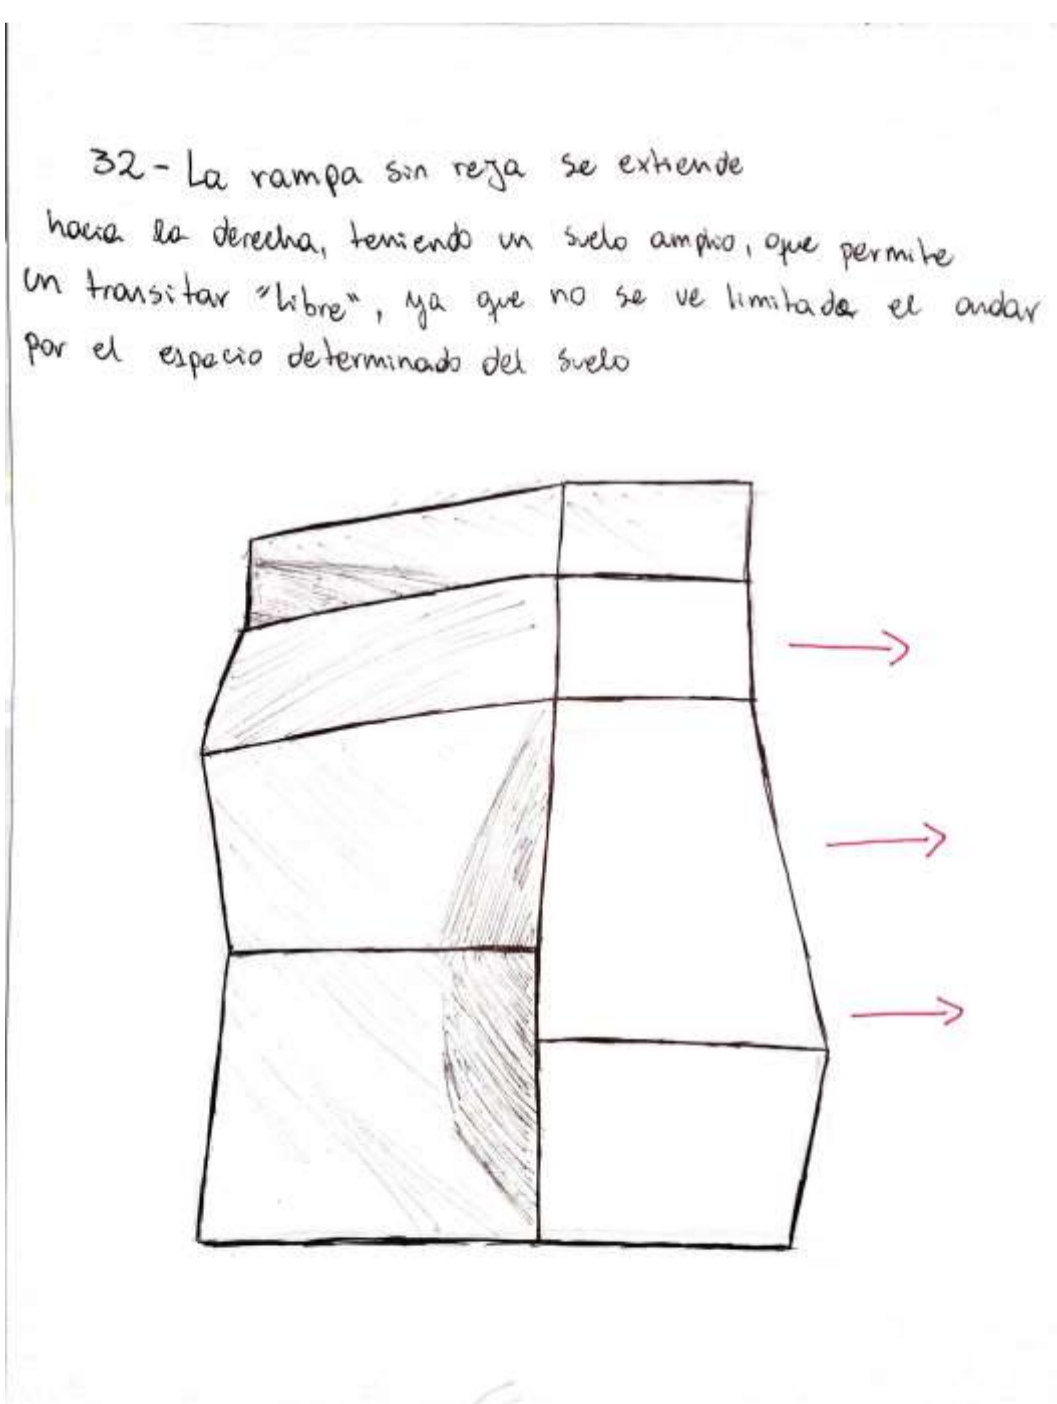 32- La rampa sin reja se extiende
hacia la derecha, teniendo un suelo amplio, que permite
un transitar "libre", ya que no se ve limitado el andar
por el espacio determinado del suelo